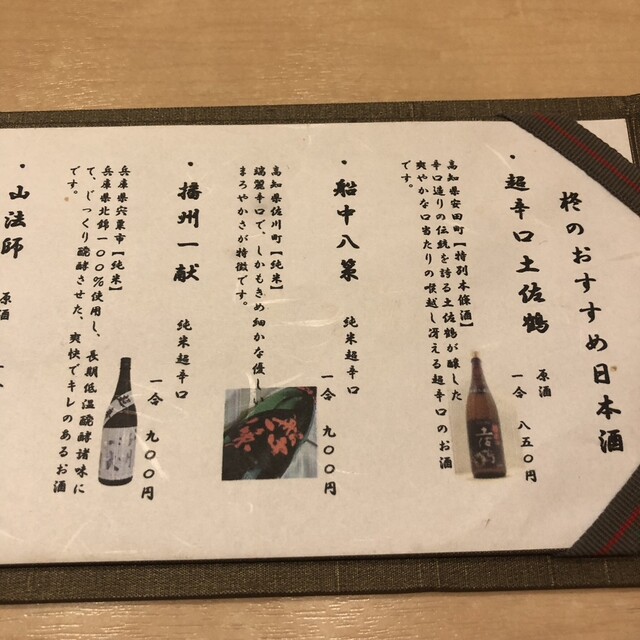 柊のおすすめ日本酒
・超辛口土佐鶴 原酒
一合 八五〇円
高知県安田町【特別本醸酒】
辛口造りの伝統を誇る土佐鶴が醸した
爽やかな口当たりの喉越し冴える超辛口のお酒
です。
・船中八策 純米超辛口
一合 九〇〇円
高知県佐川町【純米】
端麗辛口で、しかもきめ細かな優しい
まろやかさが特徴です。
・播州一献 純米超辛口
一合 九〇〇円
兵庫県宍粟市【純米】
兵庫県北錦一〇〇%使用し、長期低温醗酵諸味に
て、じっくり醗酵させた、爽快でキレのあるお酒
です。
・山法師 原酒